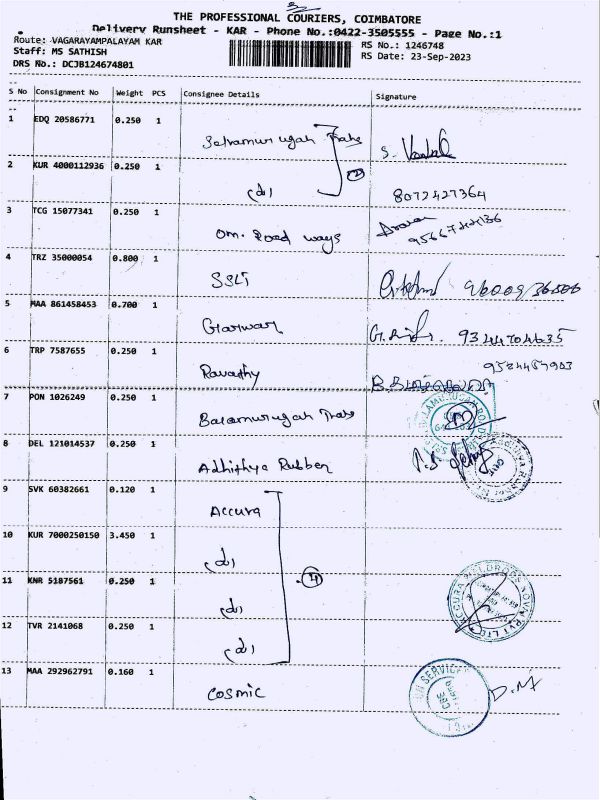 THE PROFESSIONAL COURIERS, COIMBATORE
Delivery Runsheet - KAR - Phone No.:0422-3505555 - Page No.:1
Route: VAGARAYAMPALAYAM KAR
RS No.: 1246748
Staff: MS SATHISH
RS Date: 23-Sep-2023
DRS No.: DCJB124674801
S No Consignment No Weight PCS Consignee Details Signature
1 EDQ 20586771 0.250 1
S.
2 KUR 4000112936 0.250 1
8072427364
3 TCG 15077341 0.250 1
Om. Road ways
4 TRZ 35000054 0.800 1
5 MAA 861458453 0.700 1
Garwar
9344704635
6 TRP 7587655 0.250 1
Ravathy
7 PON 1026249 0.250 1
Balamurugan
8 DEL 121014537 0.250 1
Adhithya Rubber
9 SVK 60382661 0.120 1
Accura
10 KUR 7000250150 3.450 1
(d)
4
11 KNR 5187561 0.250 1
(d)
12 TVR 2141068 0.250 1
(d)
13 MAA 292962791 0.160 1
Cosmic
D.M